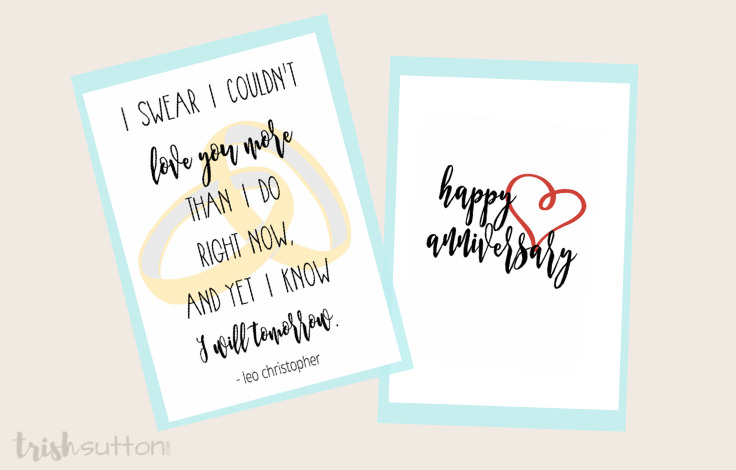 I SWEAR I COULDN'T
love you more
THAN I DO
RIGHT NOW,
AND YET I KNOW
I will tomorrow.
- leo christopher
happy
anniversary
trishsutton